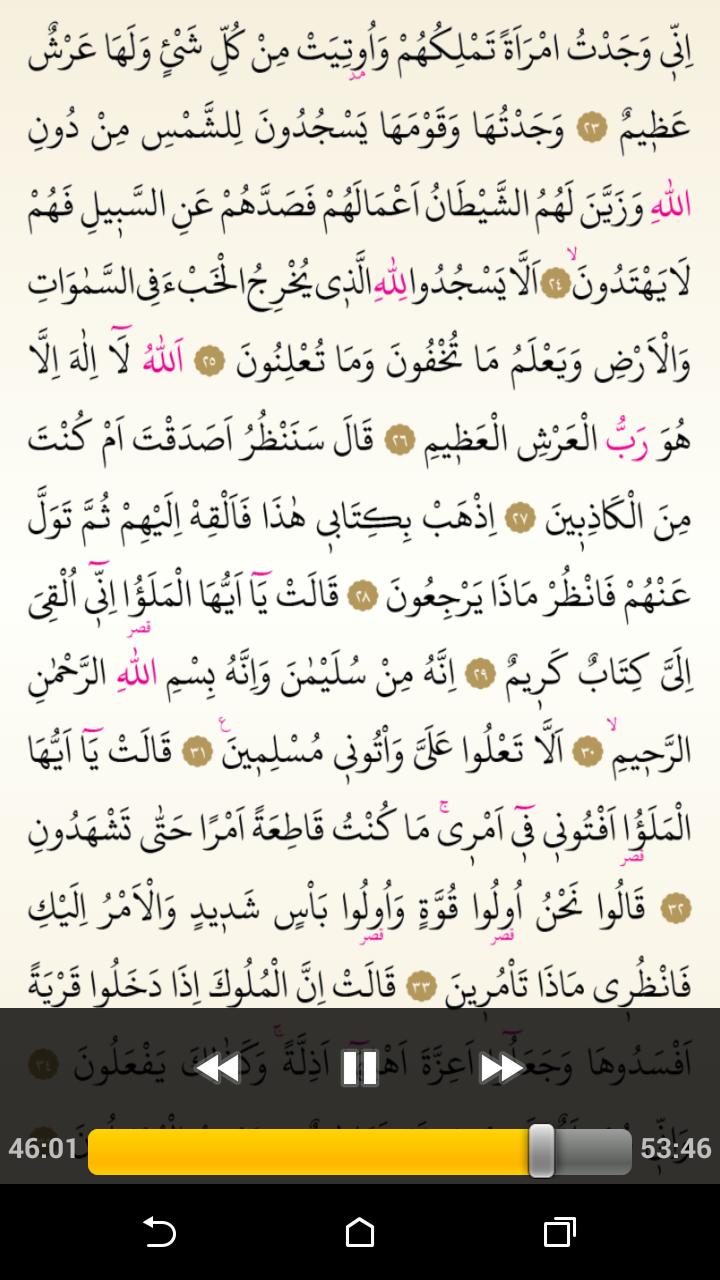 اِنّ۪ي وَجَدْتُ امْرَاَةً تَمْلِكُهُمْ وَاُو۫تِيَتْ مِنْ كُلِّ شَيْءٍ وَلَهَا عَرْشٌ
مد
عَظ۪يمٌ ٢٣ وَجَدْتُهَا وَقَوْمَهَا يَسْجُدُونَ لِلشَّمْسِ مِنْ دُونِ
اللّٰهِ وَزَيَّنَ لَهُمُ الشَّيْطَانُ اَعْمَالَهُمْ فَصَدَّهُمْ عَنِ السَّب۪يلِ فَهُمْ
لَا يَهْتَدُونَۙ ٢٤ اَلَّا يَسْجُدُوا لِلّٰهِ الَّذ۪ي يُخْرِجُ الْخَبْءَ فِي السَّمٰوَاتِ
وَالْاَرْضِ وَيَعْلَمُ مَا تُخْفُونَ وَمَا تُعْلِنُونَ ٢٥ اَللّٰهُ لَٓا اِلٰهَ اِلَّا
هُوَ رَبُّ الْعَرْشِ الْعَظ۪يمِ ٢٦ قَالَ سَنَنْظُرُ اَصَدَقْتَ اَمْ كُنْتَ
مِنَ الْكَاذِب۪ينَ ٢٧ اِذْهَبْ بِكِتَاب۪ي هٰذَا فَاَلْقِهْ اِلَيْهِمْ ثُمَّ تَوَلَّ
عَنْهُمْ فَانْظُرْ مَاذَا يَرْجِعُونَ ٢٨ قَالَتْ يَٓا اَيُّهَا الْمَلَؤُ۬ا اِنّ۪ٓي اُلْقِيَ
قصر
اِلَيَّ كِتَابٌ كَر۪يمٌ ٢٩ اِنَّهُ مِنْ سُلَيْمٰنَ وَاِنَّهُ بِسْمِ اللّٰهِ الرَّحْمٰنِ
الرَّح۪يمِۙ ٣٠ اَلَّا تَعْلُوا عَلَيَّ وَأْتُون۪ي مُسْلِم۪ينَ ع ٣١ قَالَتْ يَٓا اَيُّهَا
الْمَلَؤُ۬ا اَفْتُون۪ي ف۪ٓي اَمْر۪يۚ مَا كُنْتُ قَاطِعَةً اَمْرًا حَتّٰى تَشْهَدُونِ
قصر
٣٢ قَالُوا نَحْنُ اُو۬لُوا قُوَّةٍ وَاُو۬لُوا بَأْسٍ شَد۪يدٍ وَالْاَمْرُ اِلَيْكِ
قصر قصر
فَانْظُر۪ي مَاذَا تَأْمُر۪ينَ ٣٣ قَالَتْ اِنَّ الْمُلُوكَ اِذَا دَخَلُوا قَرْيَةً
اَفْسَدُوهَا وَجَعَلُٓوا اَعِزَّةَ اَهْلِهَٓا اَذِلَّةًۚ وَكَذٰلِكَ يَفْعَلُونَ ٣٤
46:01 53:46